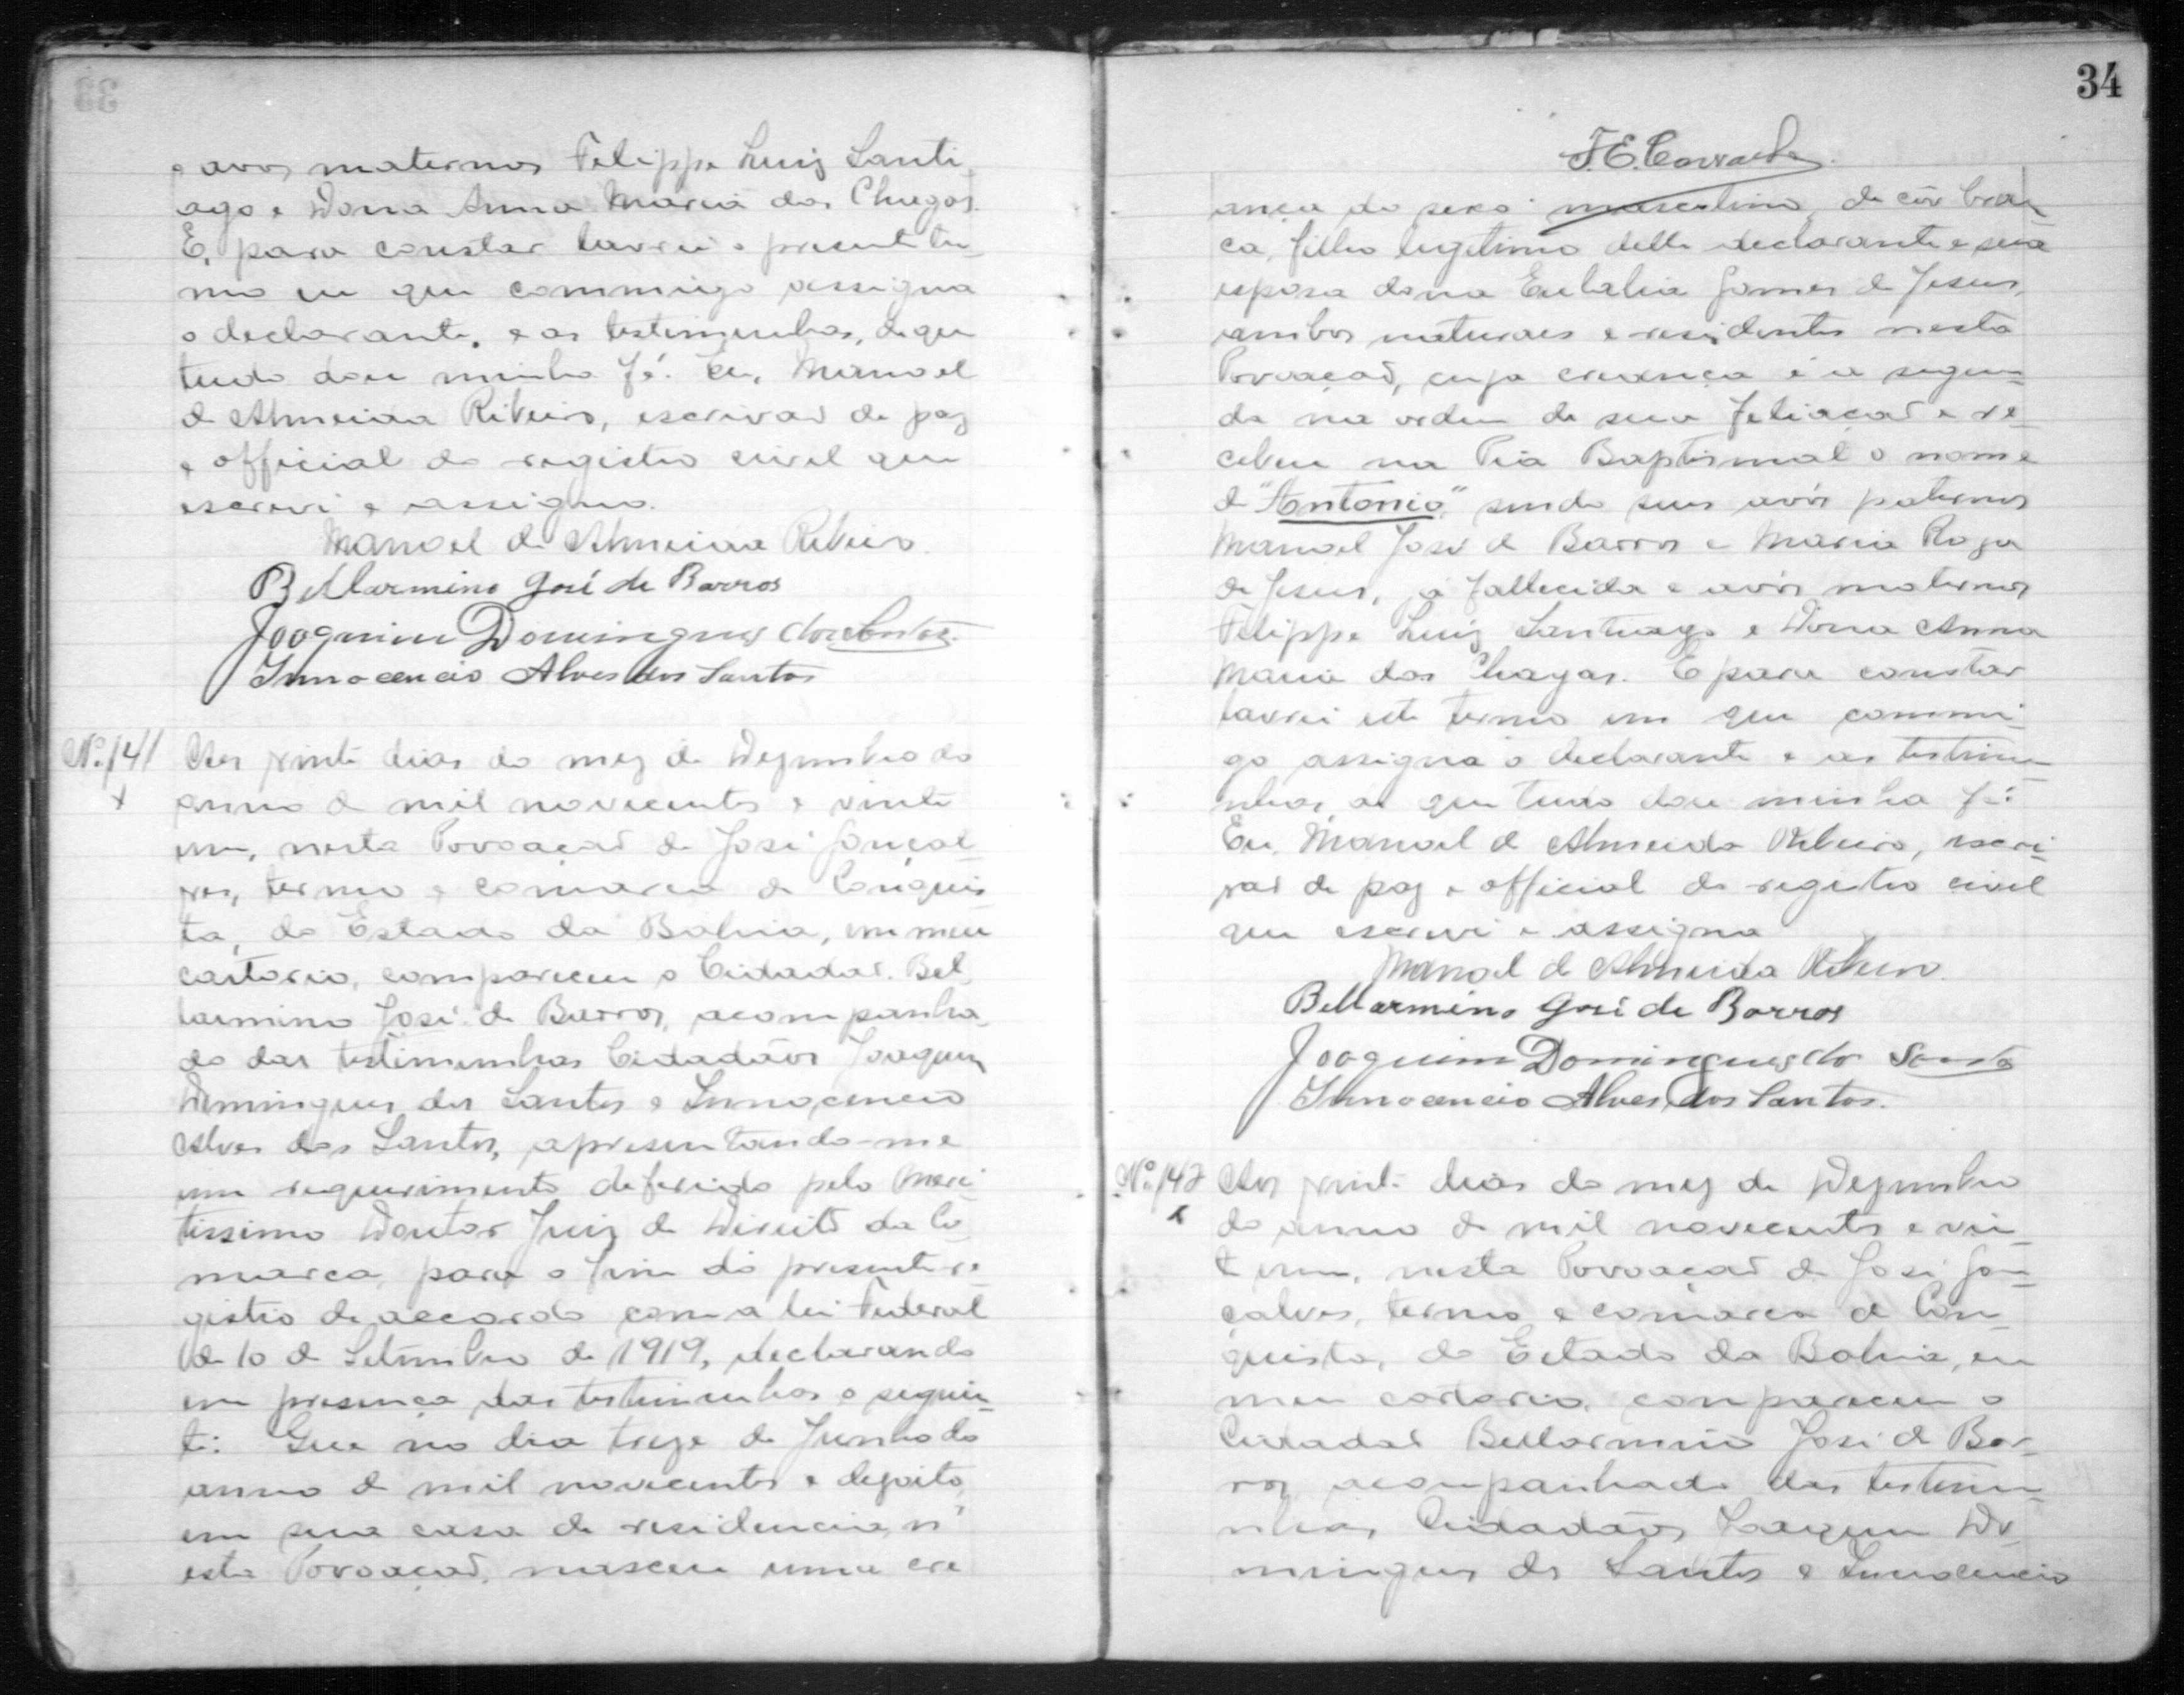 33
e avos maternos Felippe Luiz Santi
ago e Dona Anna Maria das Chagas.
E, para constar lavrei o presente ter
mo em que commigo assigna
o declarante, e as testimunhas, de que
tudo dou minha fé. Eu, Manoel
de Almeida Ribeiro, escrivaõ de paz
e official do registro civil que
escrevi e assigno.
Manoel de Almeida Ribeiro
Bellarmino José de Barros
Joaquim Domingues dos Santos
Innocencio Alves dos Santos
Nº 141
Aos vinte dias do mez de Dezembro do
anno de mil novecentos e vinte
um, nesta Povoaçaõ de José Gonçal
ves, termo e comarca de Conquis
ta, do Estado da Bahia, em meu
cartorio, compareceu o Cidadaõ. Bel
larmino José de Barros, acompanha
do das testimunhas Cidadãos Joaquim
Domingues dos Santos e Innocencio
Alves dos Santos, apresentando-me
um requerimento deferido pelo Meri
tissimo Doutor Juiz de Direito da Co
marca, para o fim do presente re
gistro de accordo com a lei Federal
de 10 de Setembro de 1919, declarando
em presença das testimunhas o seguin
te: Que no dia treze de Junho do
anno de mil novecentos e dezoito,
em sua casa de residencia, n'
esta Povoaçaõ, nasceu uma cre
34
ança do sexo masculino, de côr bran
ca, filho legitimo delle declarante e sua
esposa dona Eulalia Gomes de Jesus,
ambos naturaes e residentes nesta
Povoaçaõ, cuja creança é a segun
da na ordem de sua filiaçaõ e re
cebeu na Pia Baptismal o nome
de "Antonio," sendo seus avós paternos
Manoel José de Barros e Maria Roza
de Jesus, já fallecida e avós maternos
Felippe Luiz Santiago e Dona Anna
Maria das Chagas. E para constar
lavrei este termo em que commi
go assigna o declarante e as testimu
nhas, do que tudo dou minha fé.
Eu, Manoel de Almeida Ribeiro, escri
vaõ de paz e official do registro civil
que escrevi e assigno
Manoel de Almeida Ribeiro.
Bellarmino José de Barros
Joaquim Domingues dos Santos
Innocencio Alves dos Santos.
Nº 142
Aos vinte dias do mez de Dezembro
do anno de mil novecentos e vin
te um, nesta Povoaçaõ de José Gon
çalves, termo e comarca de Con
quista, do Estado da Bahia, em
meu cartorio, compareceu o
Cidadaõ Bellarmino José de Bar
ros, acompanhado das testimu
nhas, Cidadãos Joaquim Do
mingues dos Santos e Innocencio